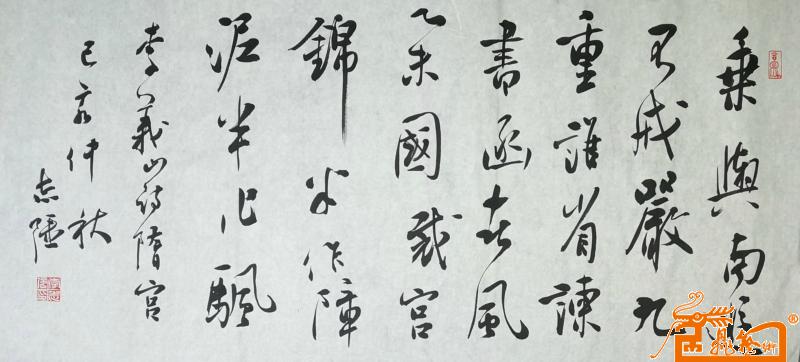 乘興南遊
不戒嚴九
重誰省諫
書函春風
舉國裁宮
錦半作障
泥半作颿
李義山詩隋宮
己亥仲秋
志